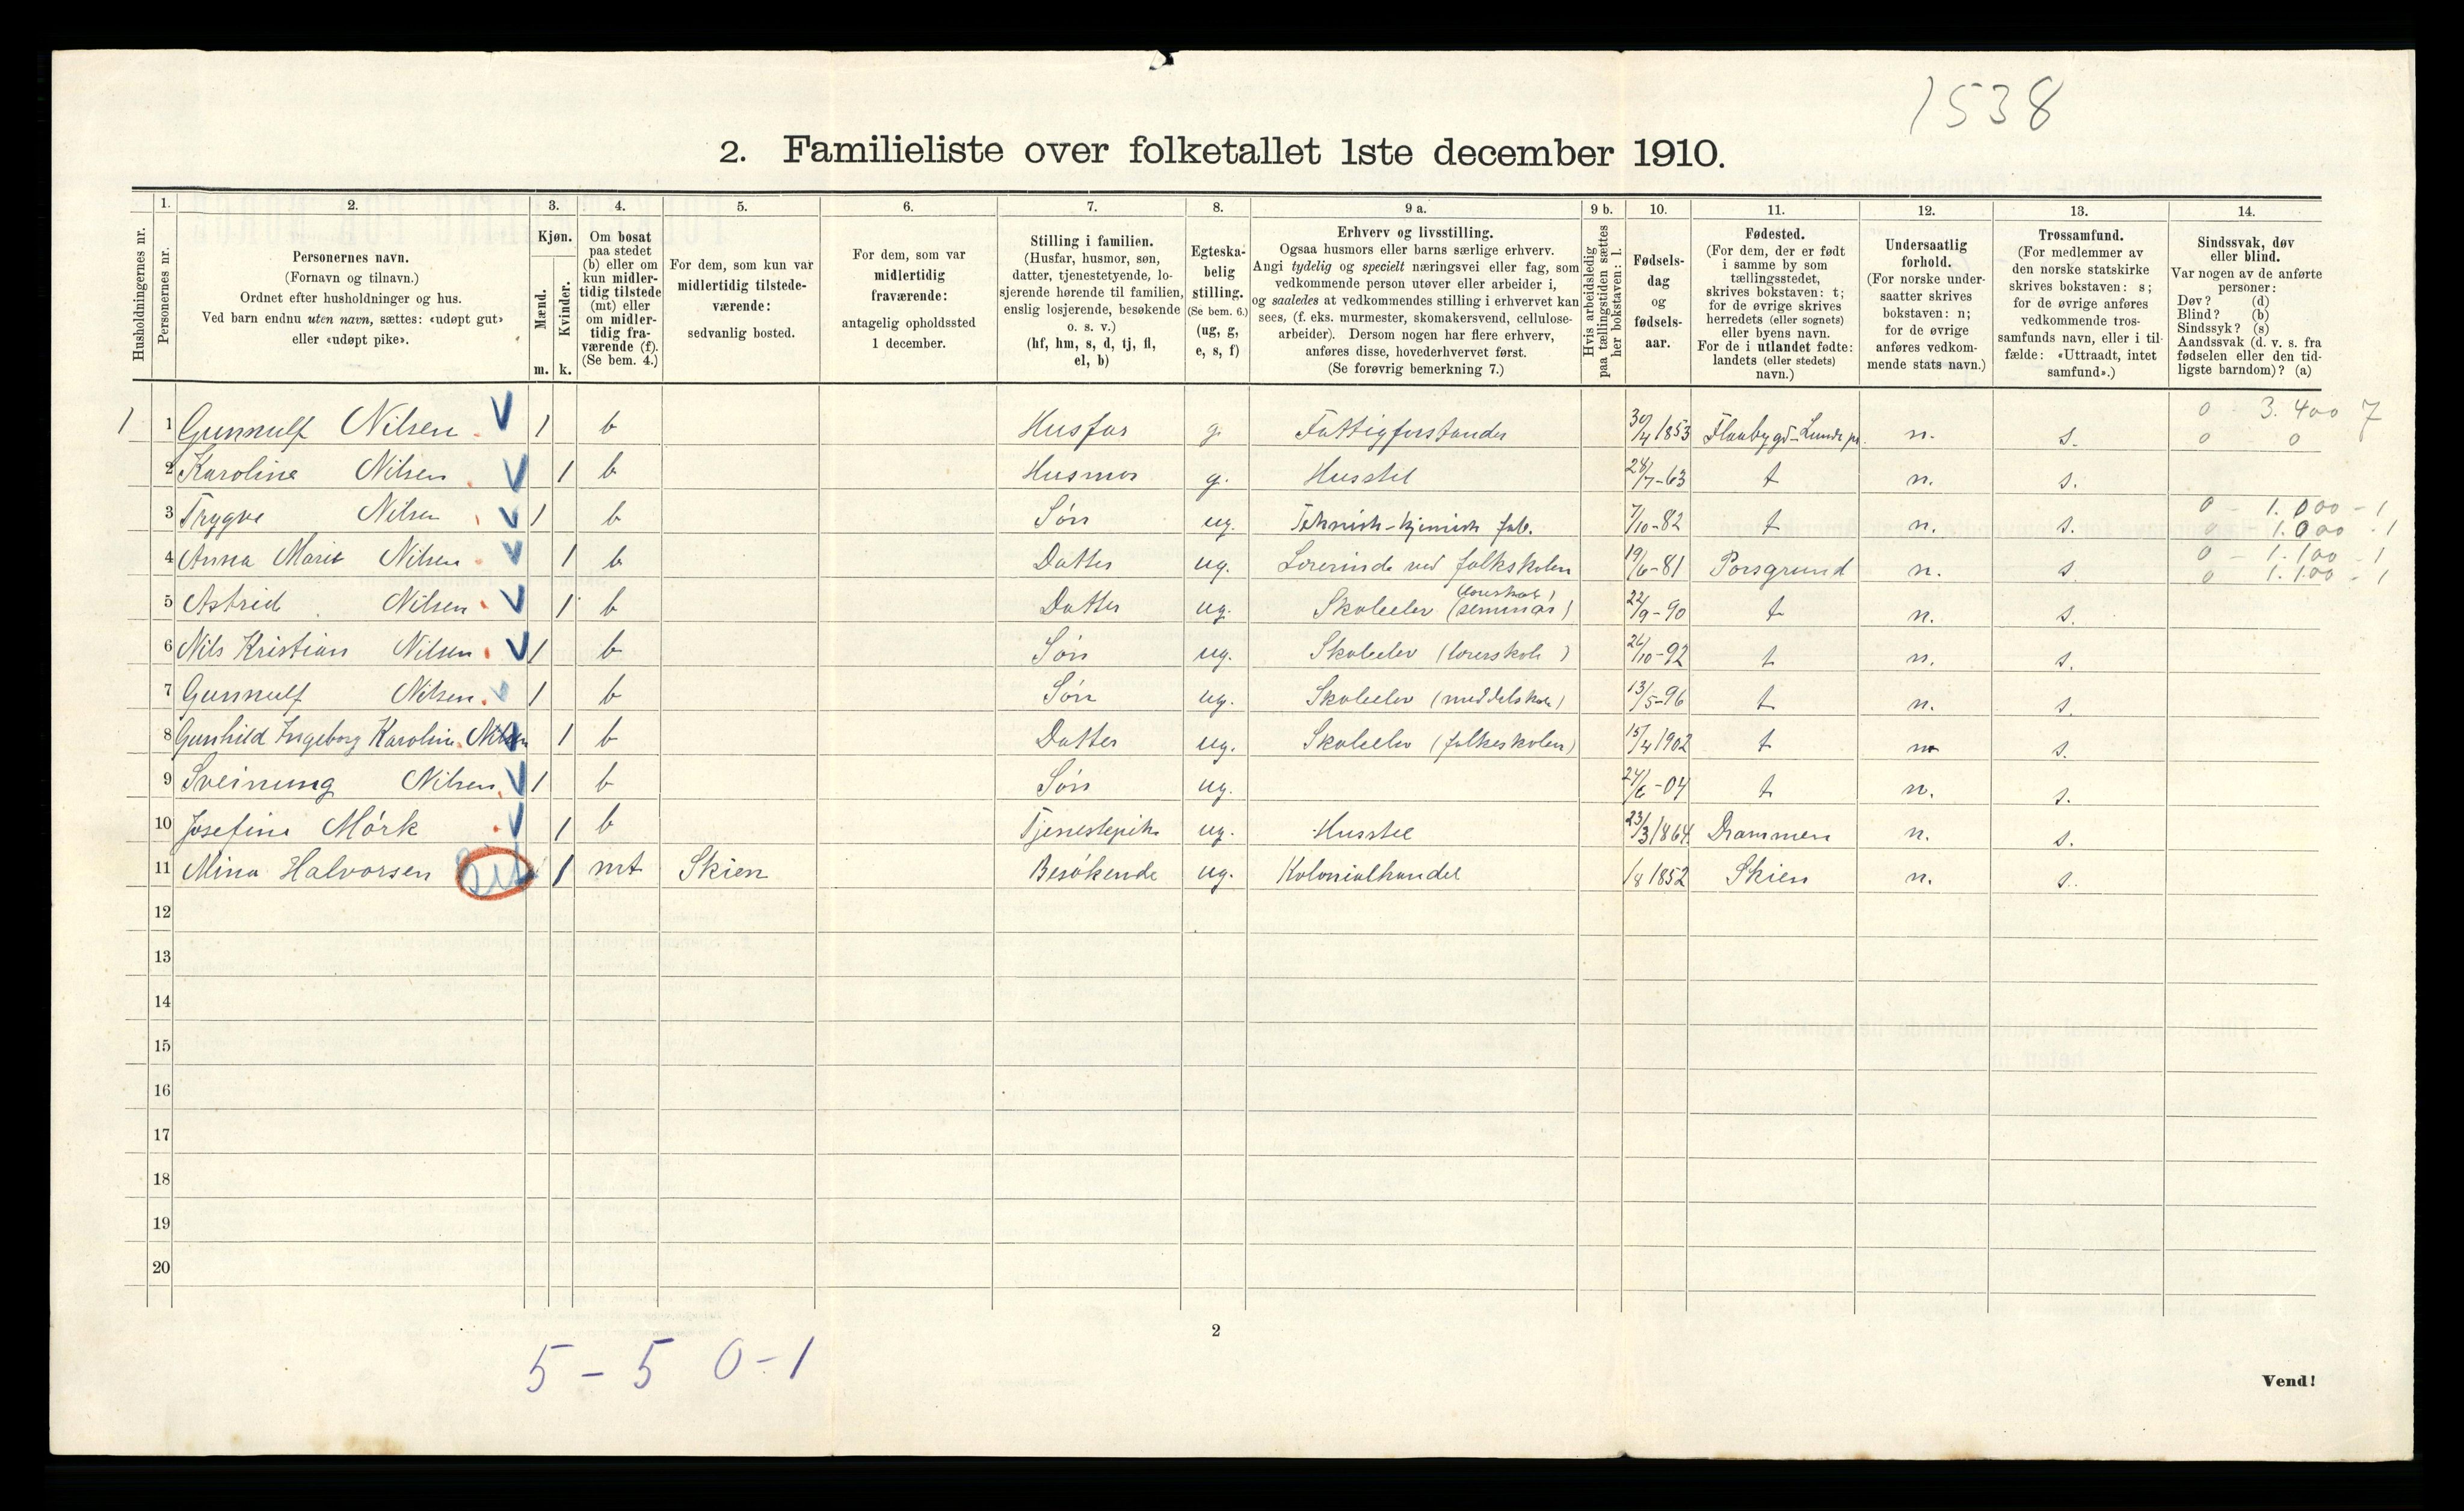 1538
2. Familieliste over folketallet 1ste december 1910.
Husholdningernes nr.
1.
Personernes nr.
2.
Personernes navn.
(Fornavn og tilnavn.)
Ordnet efter husholdninger og hus.
Ved barn endnu uten navn, sættes: «udøpt gut»
eller «udøpt pike».
3.
Kjøn.
Mænd.
Kvinder.
m. k.
4.
Om bosat
paa stedet
(b) eller om
kun midler-
tidig tilstede
(mt) eller
om midler-
tidig fra-
værende (f).
(Se bem. 4.)
5.
For dem, som kun var
midlertidig tilstede-
værende:
sedvanlig bosted.
6.
For dem, som var
midlertidig
fraværende:
antagelig opholdssted
1 december.
7.
Stilling i familien.
(Husfar, husmor, søn,
datter, tjenestetyende, lo-
sjerende hørende til familien,
enslig losjerende, besøkende
o. s. v.)
(hf, hm, s, d, tj, fl,
el, b)
8.
Egteska-
belig
stilling.
(Se bem. 6.)
(ug, g,
e, s, f)
9 a.
Erhverv og livsstilling.
Ogsaa husmors eller barns særlige erhverv.
Angi tydelig og specielt næringsvei eller fag, som
vedkommende person utøver eller arbeider i,
og saaledes at vedkommendes stilling i erhvervet kan
sees, (f. eks. murmester, skomakersvend, cellulose-
arbeider). Dersom nogen har flere erhverv,
anføres disse, hovederhvervet først.
(Se forøvrig bemerkning 7.)
9 b.
Hvis arbeidsledig
paa tællingstiden sættes
her bokstaven: l.
10.
Fødsels-
dag
og
fødsels-
aar.
11.
Fødested.
(For dem, der er født
i samme by som
tællingsstedet,
skrives bokstaven: t;
for de øvrige skrives
herredets (eller sognets)
eller byens navn.
For de i utlandet fødte:
landets (eller stedets)
navn.)
12.
Undersaatlig
forhold.
(For norske under-
saatter skrives
bokstaven: n;
for de øvrige
anføres vedkom-
mende stats navn.)
13.
Trossamfund.
(For medlemmer av
den norske statskirke
skrives bokstaven: s;
for de øvrige anføres
vedkommende tros-
samfunds navn, eller i til-
fælde: «Uttraadt, intet
samfund».)
14.
Sindssvak, døv
eller blind.
Var nogen av de anførte
personer:
Døv? (d)
Blind? (b)
Sindssyk? (s)
Aandssvak (d. v. s. fra
fødselen eller den tid-
ligste barndom)? (a)
0 - 3.400 7
1 1 Gunnulf Nilsen 1 b Husfar g. Fattigforstander 30/4 1853 Flaabygd-Lunde n. s. 0 0
2 Karoline Nilsen 1 b Husmor g. Husstel 28/7-63 t n. s.
0 - 1.000 - 1
3 Trygve Nilsen 1 b Søn ug. Teknisk-kjemisk fab. 7/10-82 t n. s. 0 1.000 - 1
0 - 1.100 - 1
4 Anna Marie Nilsen 1 b Datter ug. Lærerinde ved folkskolen 19/6-81 Porsgrund n. s. 0 1.100 - 1
5 Astrid Nilsen 1 b Datter ug. Skoleelev (seminar) 22/9-90 t n. s.
6 Nils Kristian Nilsen 1 b Søn ug. Skoleelev (lærerskole) 26/10-92 t n. s.
7 Gunnulf Nilsen 1 b Søn ug. Skoleelev (middelskole) 13/5-96 t n. s.
8 Gunhild Ingeborg Karoline Nilsen 1 b Datter ug. Skoleelev (folkeskolen) 15/4 1902 t n s.
9 Sveinung Nilsen 1 b Søn ug. 24/6-04 t n. s.
10 Josefine Mørk 1 b Tjenestepike ug. Husstel 23/3 1864 Drammen n. s.
11 Mina Halvorsen 1 mt Skien Besøkende ug. Kolonialhandel /8 1852 Skien n. s.
12
13
14
15
16
17
18
19
20
2
5 - 5 0 - 1
Vend!